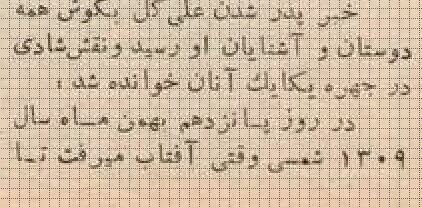 خبر پدر شدن علی گل بگوش همه
دوستان و آشنایان او رسید و نقش شادی
در چهره یکایك آنان خوانده شد ؛
در روز پــانزدهم بهمن مــاه سال
۱۳۰۹ شمسی وقتی آفتاب میرفت تــا